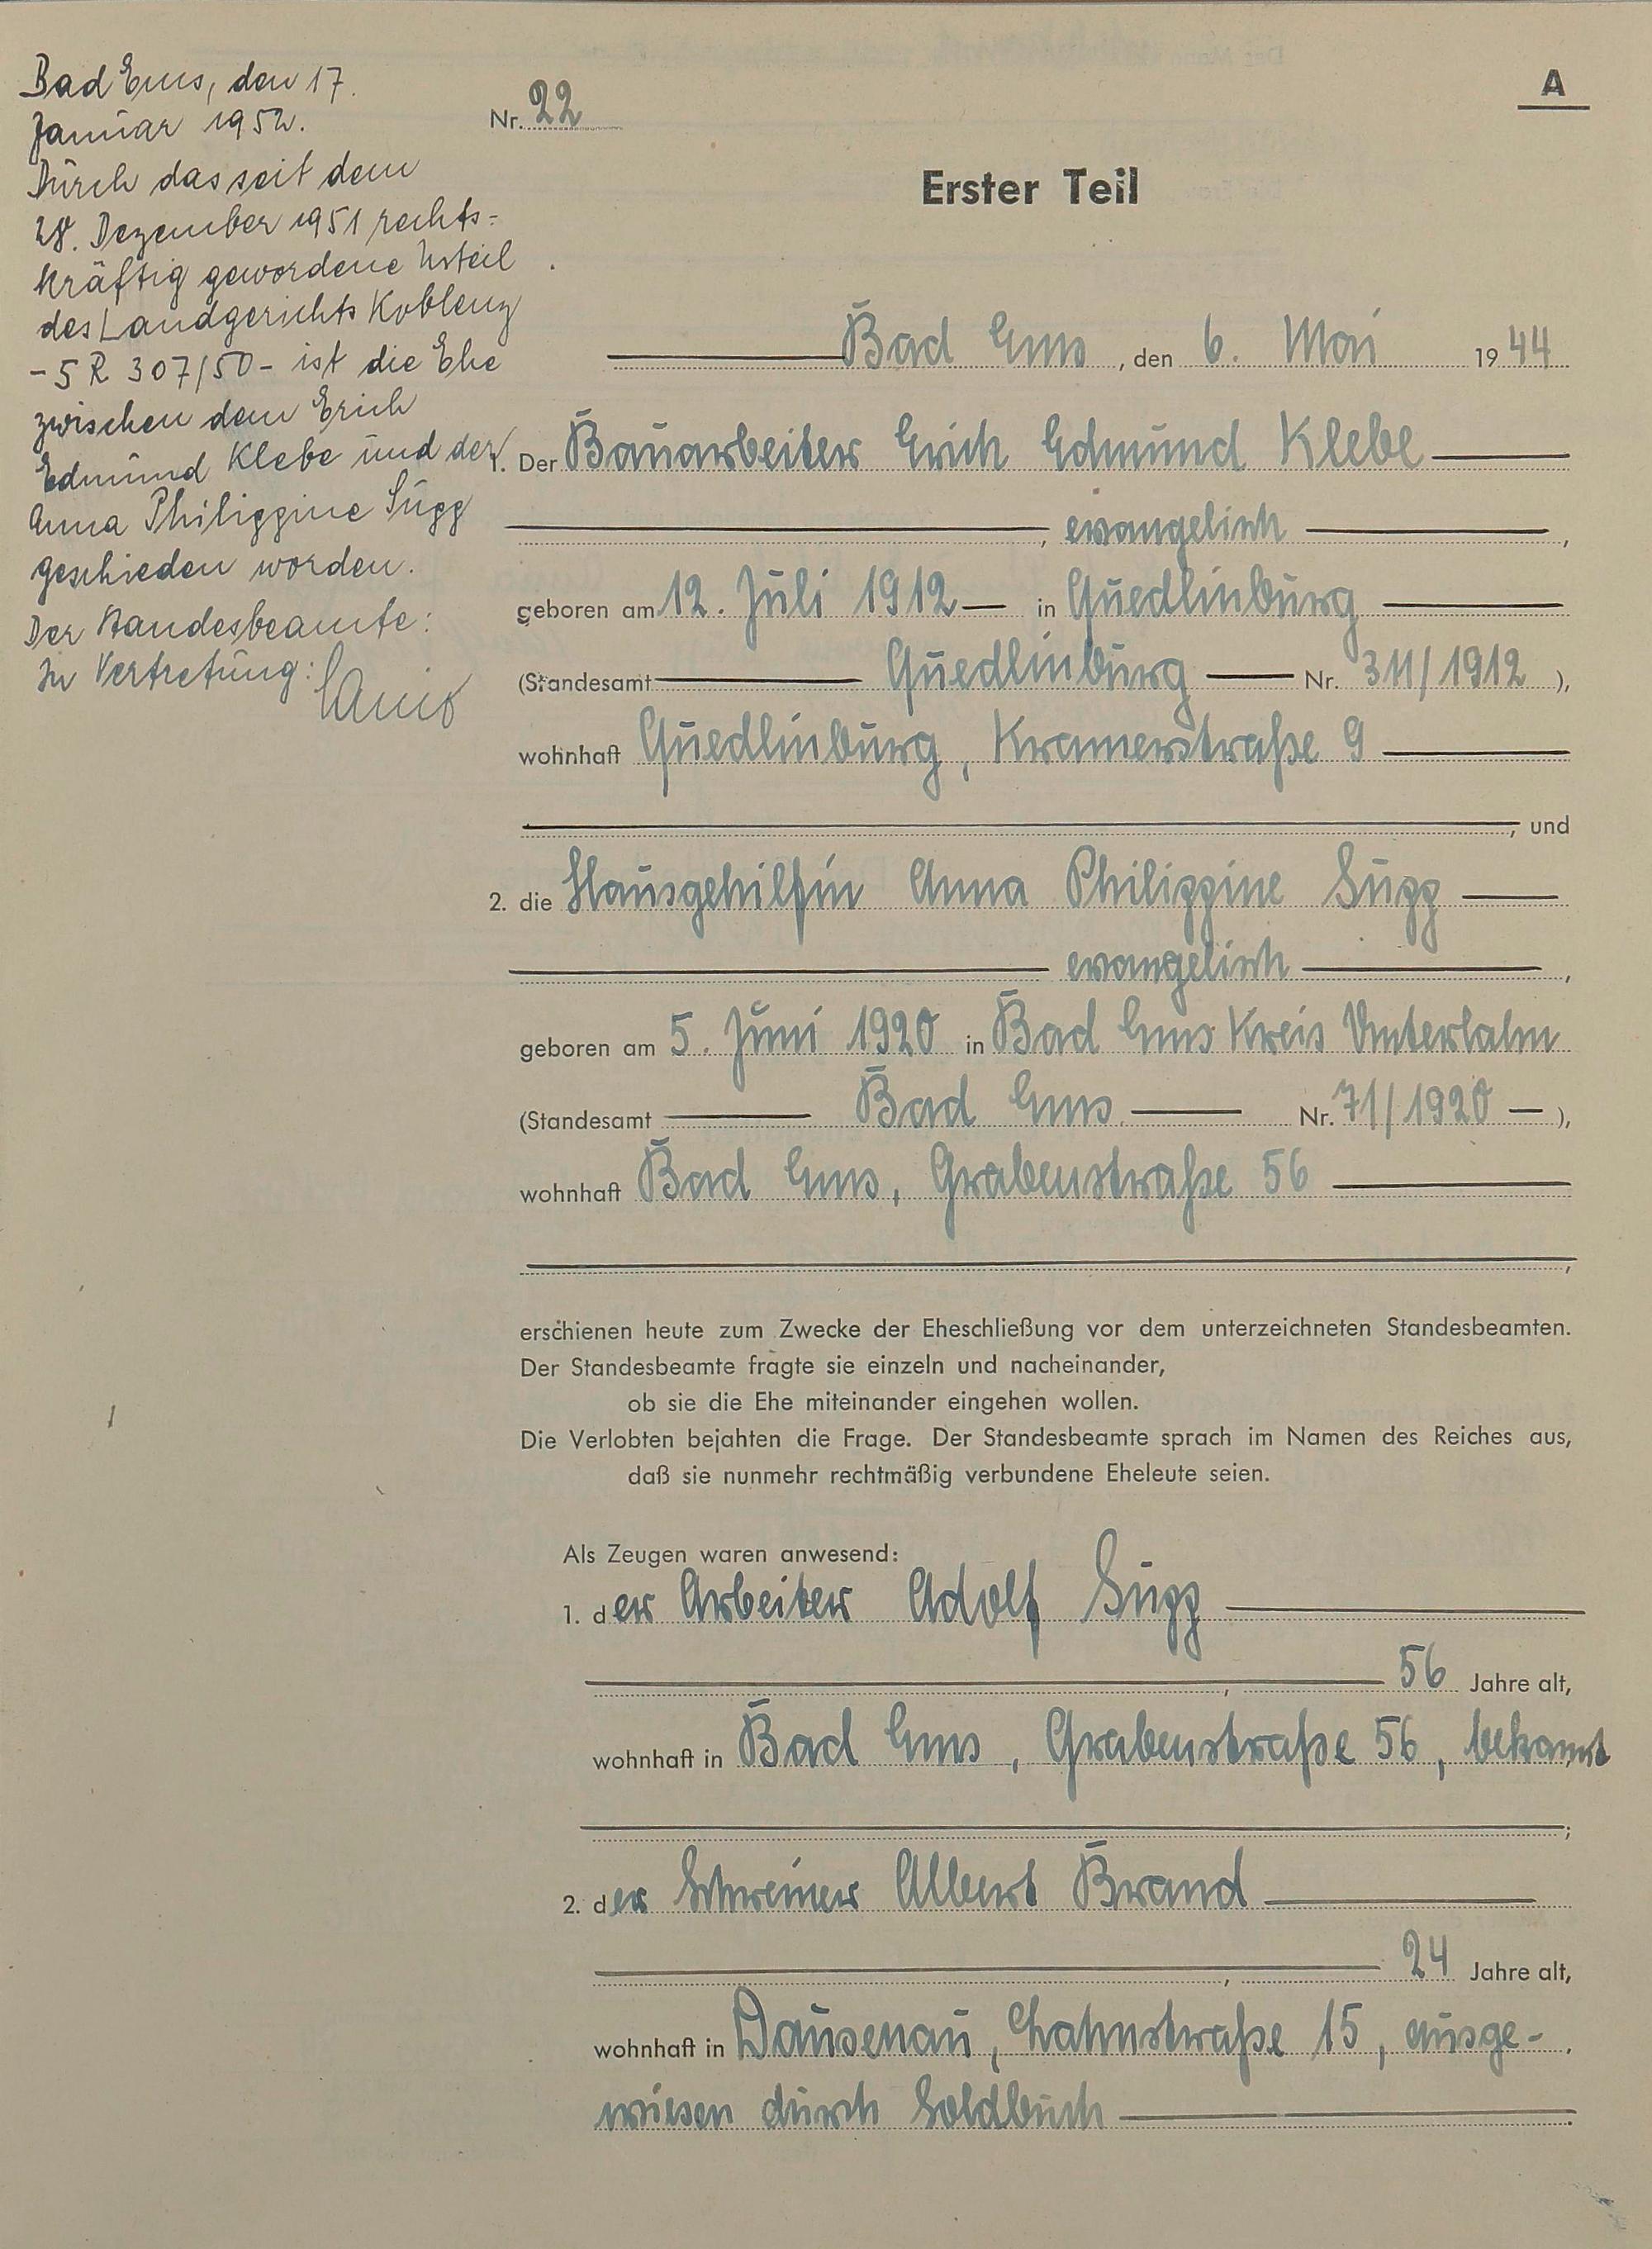 Bad Ems, den 17.
Januar 1952.
Durch das seit dem
28. Dezember 1951 rechts=
kräftig gewordene Urteil
des Landgerichts Koblenz
- 5 R 307/50 - ist die Ehe
zwischen dem Erich
Edmund Klebe und der
Anna Philippine Sugg
geschieden worden.
Der Standesbeamte:
In Vertretung:
A
Nr. 22
Erster Teil
Bad Ems, den 6. Mai 1944
1. Der Bauarbeiter Erich Edmund Klebe
, evangelisch ,
geboren am 12. Juli 1912 in Quedlinburg
(Standesamt Quedlinburg Nr. 311/1912 ),
wohnhaft Quedlinburg, Kramerstraße 9
, und
2. die Hausgehilfin Anna Philippine Sugg
evangelisch ,
geboren am 5. Juni 1920 in Bad Ems Kreis Unterlahn
(Standesamt Bad Ems Nr. 71/1920 ),
wohnhaft Bad Ems, Grabenstraße 56
,
erschienen heute zum Zwecke der Eheschließung vor dem unterzeichneten Standesbeamten.
Der Standesbeamte fragte sie einzeln und nacheinander,
ob sie die Ehe miteinander eingehen wollen.
Die Verlobten bejahten die Frage. Der Standesbeamte sprach im Namen des Reiches aus,
daß sie nunmehr rechtmäßig verbundene Eheleute seien.
Als Zeugen waren anwesend:
1. der Arbeiter Adolf Sugg
, 56 Jahre alt,
wohnhaft in Bad Ems, Grabenstraße 56, bekannt
;
2. der Schreiner Albert Brand
, 24 Jahre alt,
wohnhaft in Dausenau, Lahnstraße 15, ausge-
wiesen durch Soldbuch .